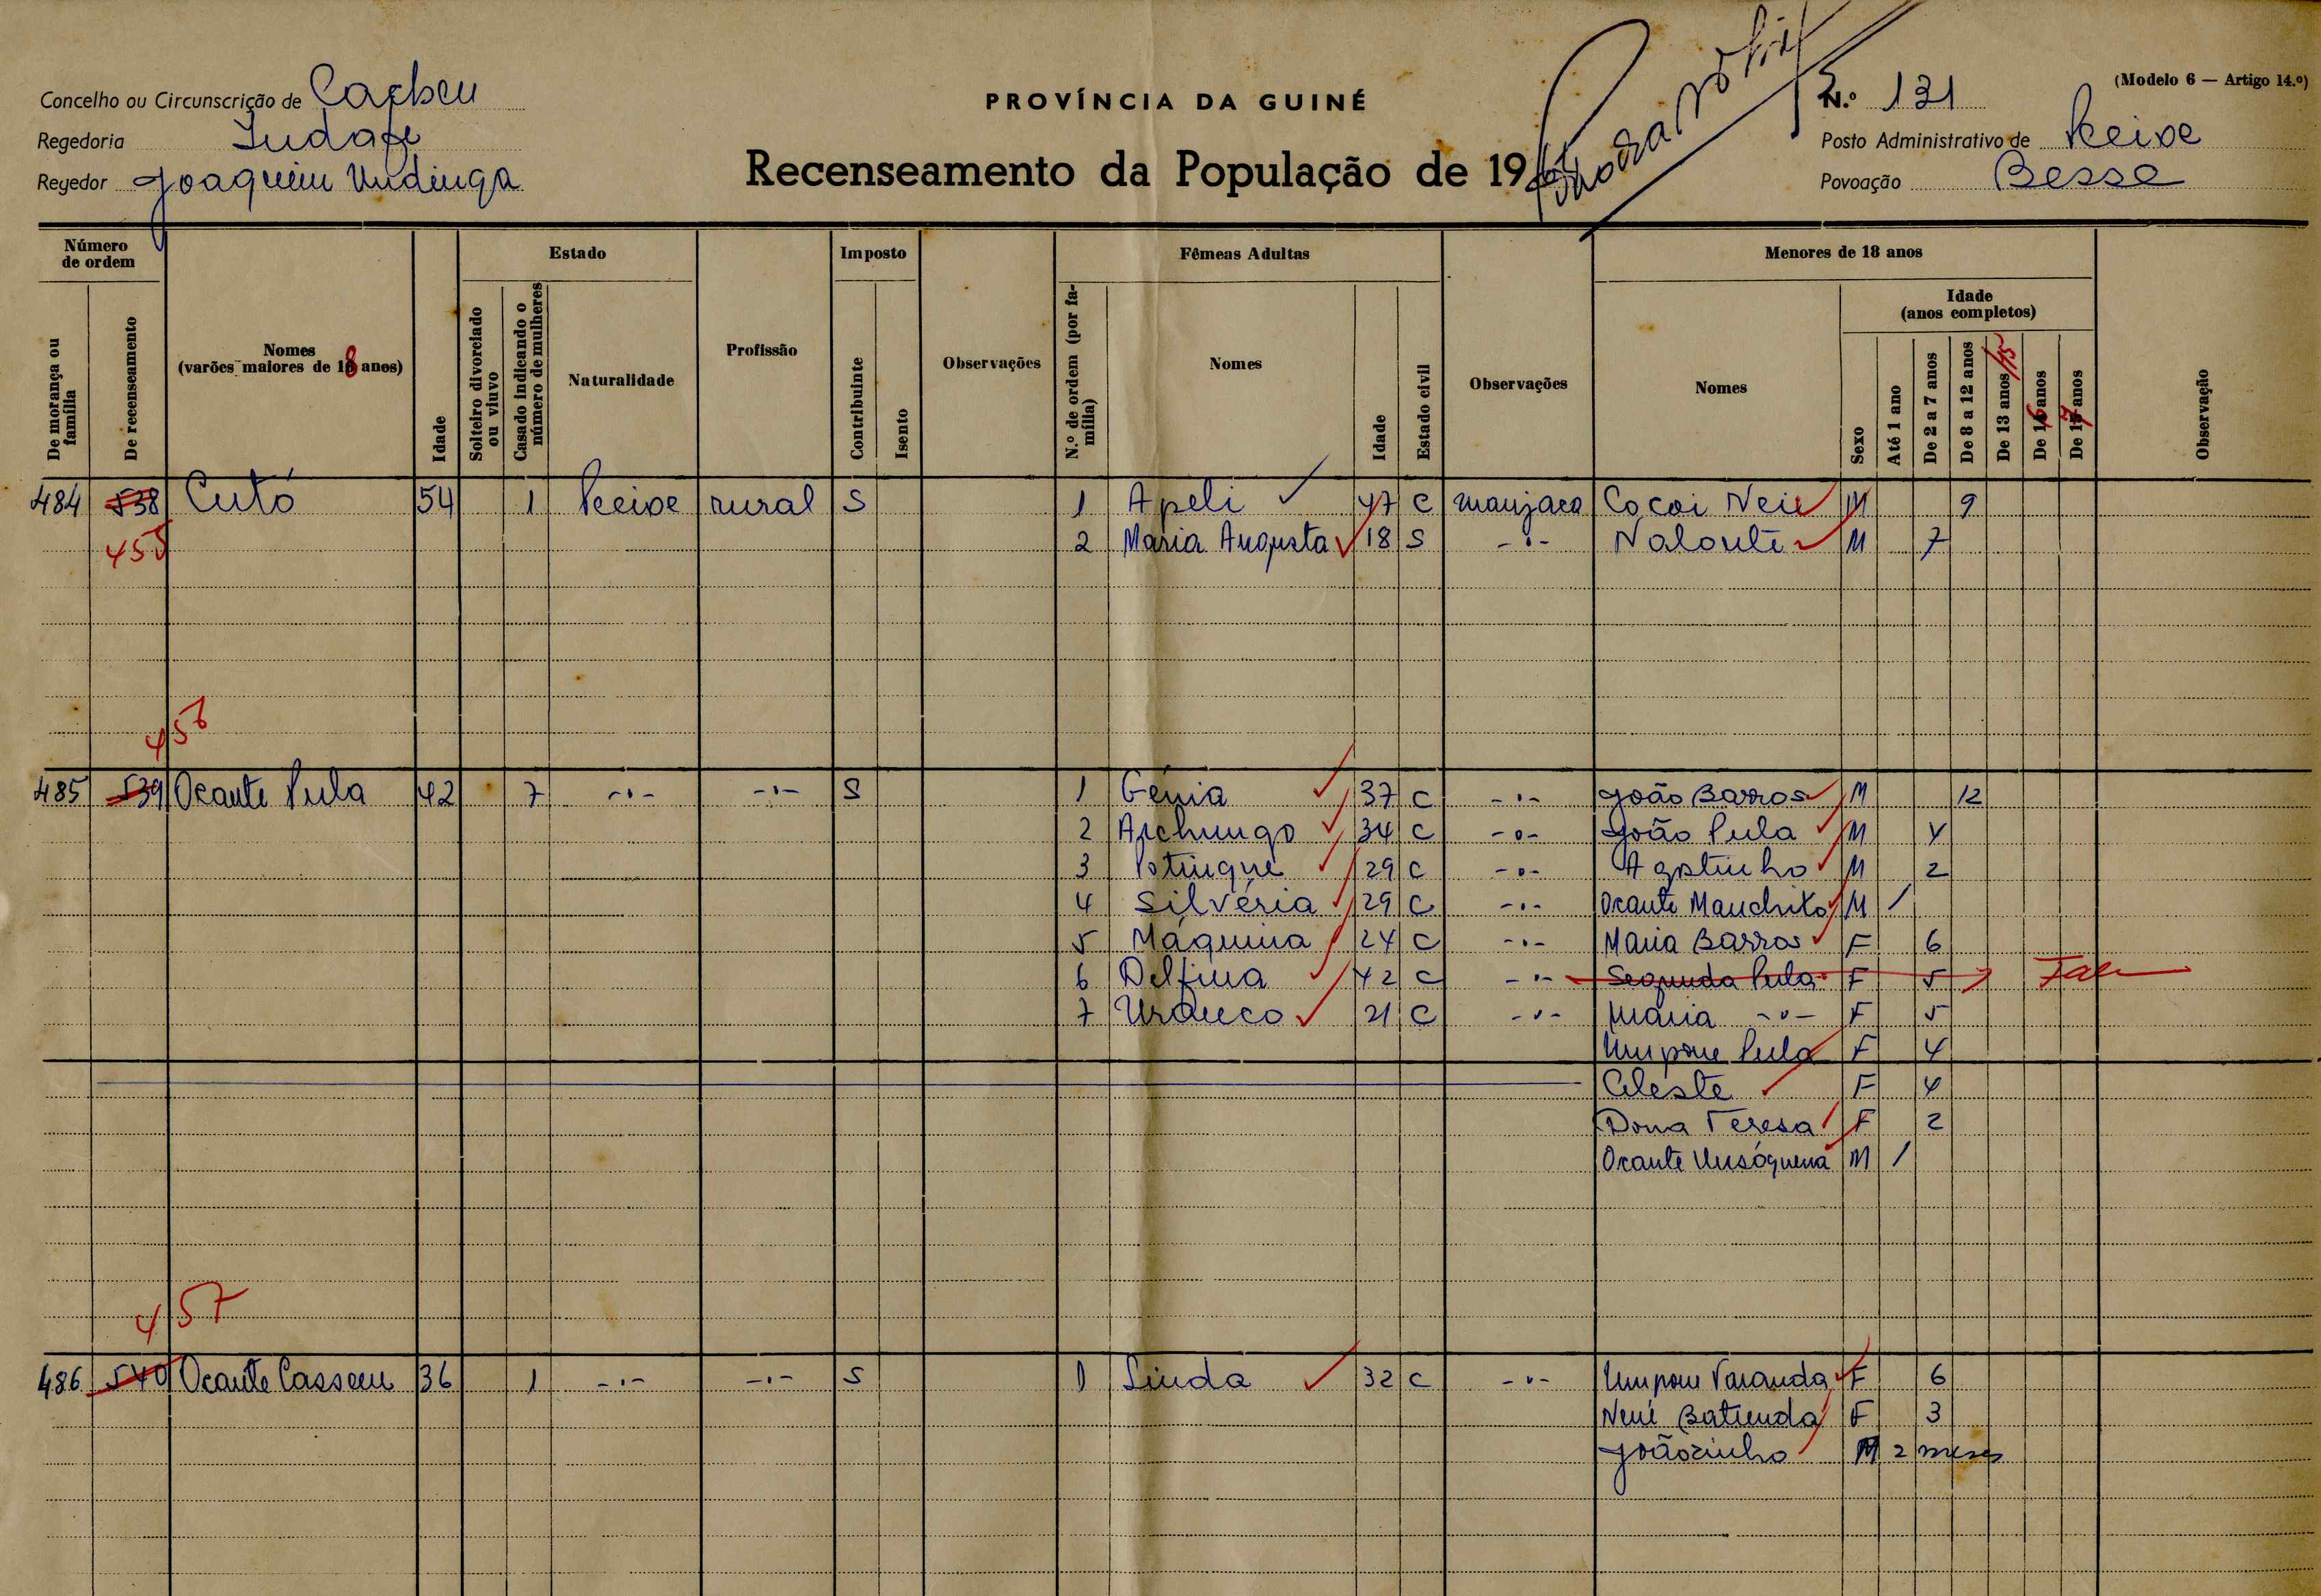 Concelho ou Circunscrição de Cacheu
PROVÍNCIA DA GUINÉ
N.º 131
(Modelo 6 — Artigo 14.º)
Regedoria
Posto Administrativo de
Regedor Joaquim
Recenseamento da População de 19
Povoação Besse
Número de ordem
De morança ou família
De recenseamento
Nomes
(varões maiores de 18 anos)
Idade
Estado
Solteiro divorciado ou viuvo
Casado indicando o número de mulheres
Naturalidade
Profissão
Imposto
Contribuinte
Isento
Observações
Fêmeas Adultas
N.º de ordem (por família)
Nomes
Idade
Estado civil
Observações
Menores de 18 anos
Nomes
Sexo
Idade
(anos completos)
Até 1 ano
De 2 a 7 anos
De 8 a 12 anos
De 13 anos /15
De 16 anos
De 17 anos
Observação
484 538 Cutó 54 1 rural S 1 Apeli 47 C manjaca Cocoi M 9
455 2 Maria Augusta 18 S -"- Nalonte M 7
456
485 539 Ocante Pula 42 7 -"- -"- S 1 Génia 37 C -"- João Barros M 12
2 34 C -"- João Pula M 4
3 29 C -"- Agostinho M 2
4 Silvéria 29 C -"- Ocante M /
5 Máquina 24 C -"- Maria Barros F 6
6 Delfina 42 C -"- Segunda Pula F 5
7 21 C -"- Maria -"- F 5
Pula F 4
Celeste F 4
Dona Teresa F 2
Ocante M /
457
486 540 Ocante 36 1 -"- -"- S 1 Linda 32 C -"- F 6
F 3
Joãozinho M 2 meses